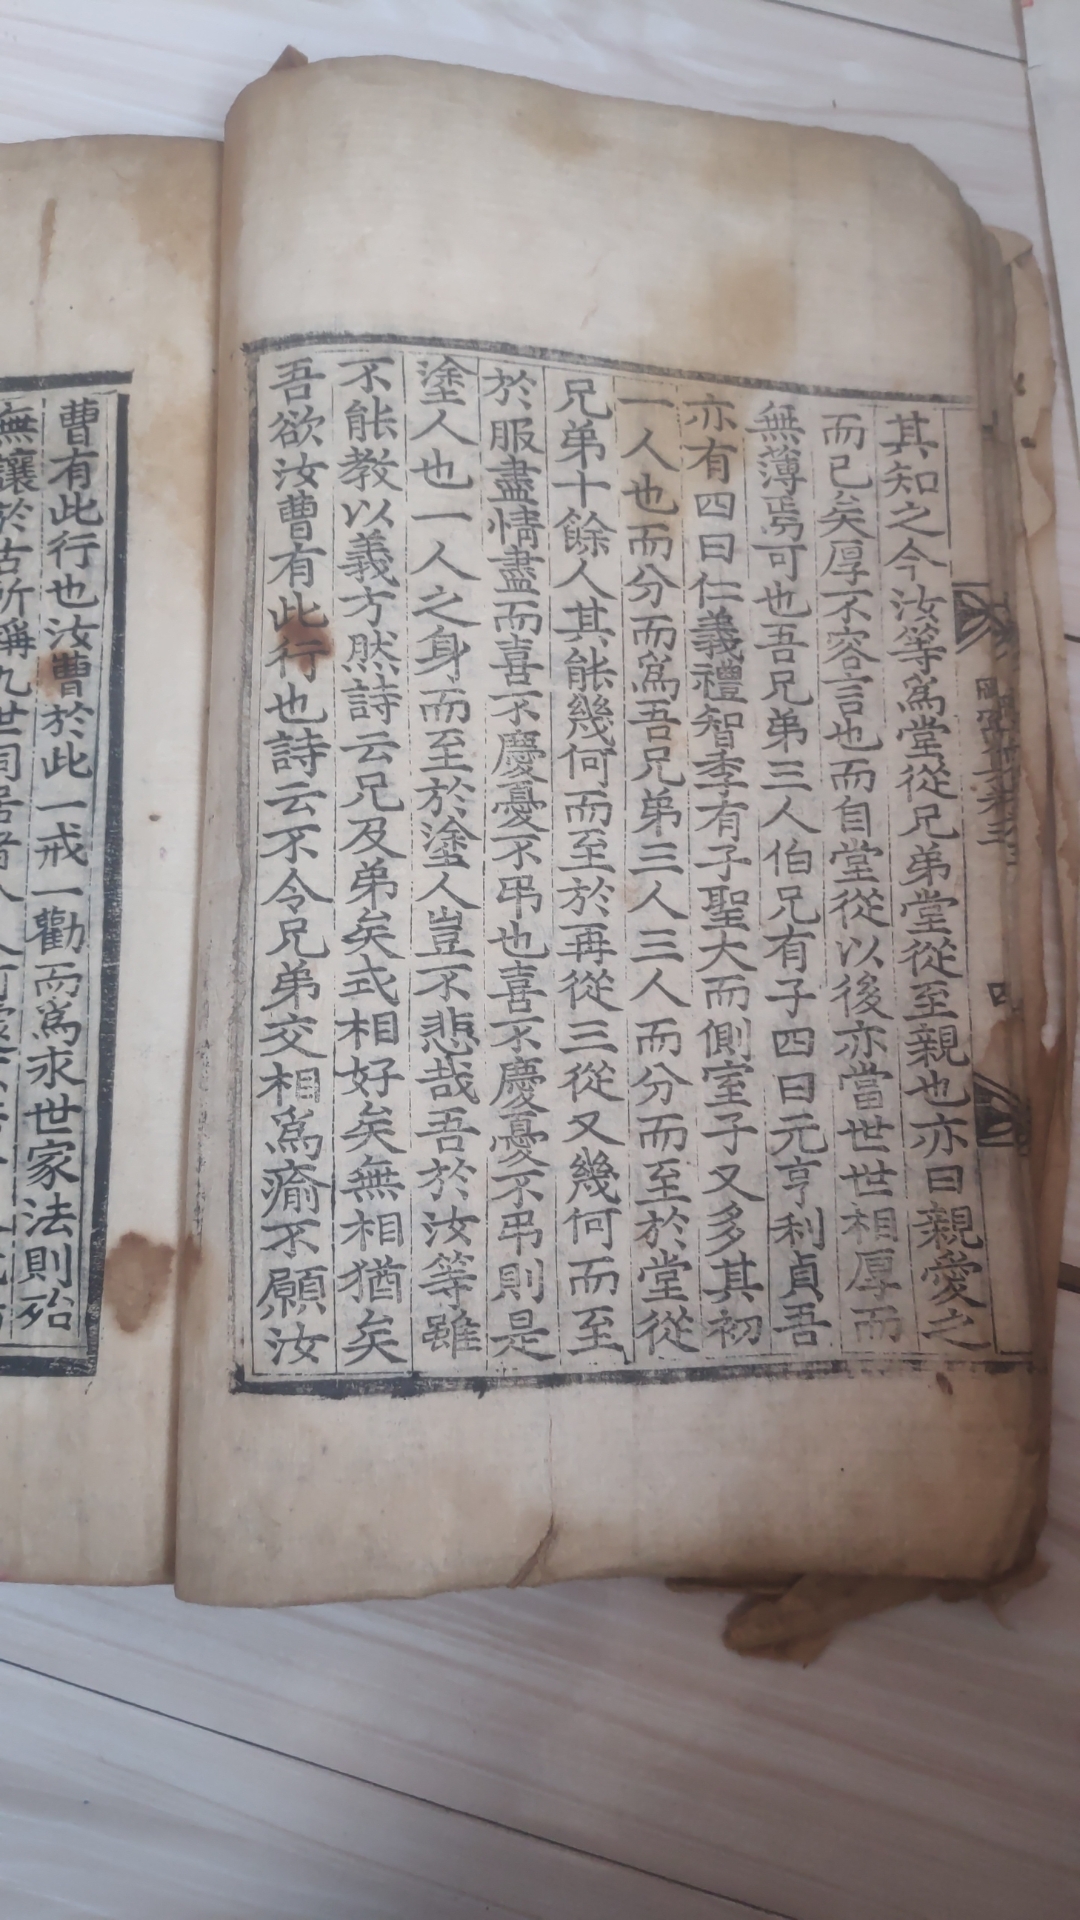 其知之今汝等爲堂從兄弟堂從至親也亦曰親愛之
而已矣厚不容言也而自堂從以後亦當世世相厚而
無薄焉可也吾兄弟三人伯兄有子四曰元亨利貞吾
亦有四曰仁義禮智季有子聖大而側室子又多其初
一人也而分而爲吾兄弟三人三人而分而至於堂從
兄弟十餘人其能幾何而至於再從三從又幾何而至
於服盡情盡而喜不慶憂不弔也喜不慶憂不弔則是
塗人也一人之身而至於塗人豈不悲哉吾於汝等雖
不能教以義方然詩云兄及弟矣式相好矣無相猶矣
吾欲汝曹有此行也詩云不令兄弟交相爲瘉不願汝
曹有此行也汝曹於此一戒一勸而爲求世家法則殆
無讓於古所稱九世同居者